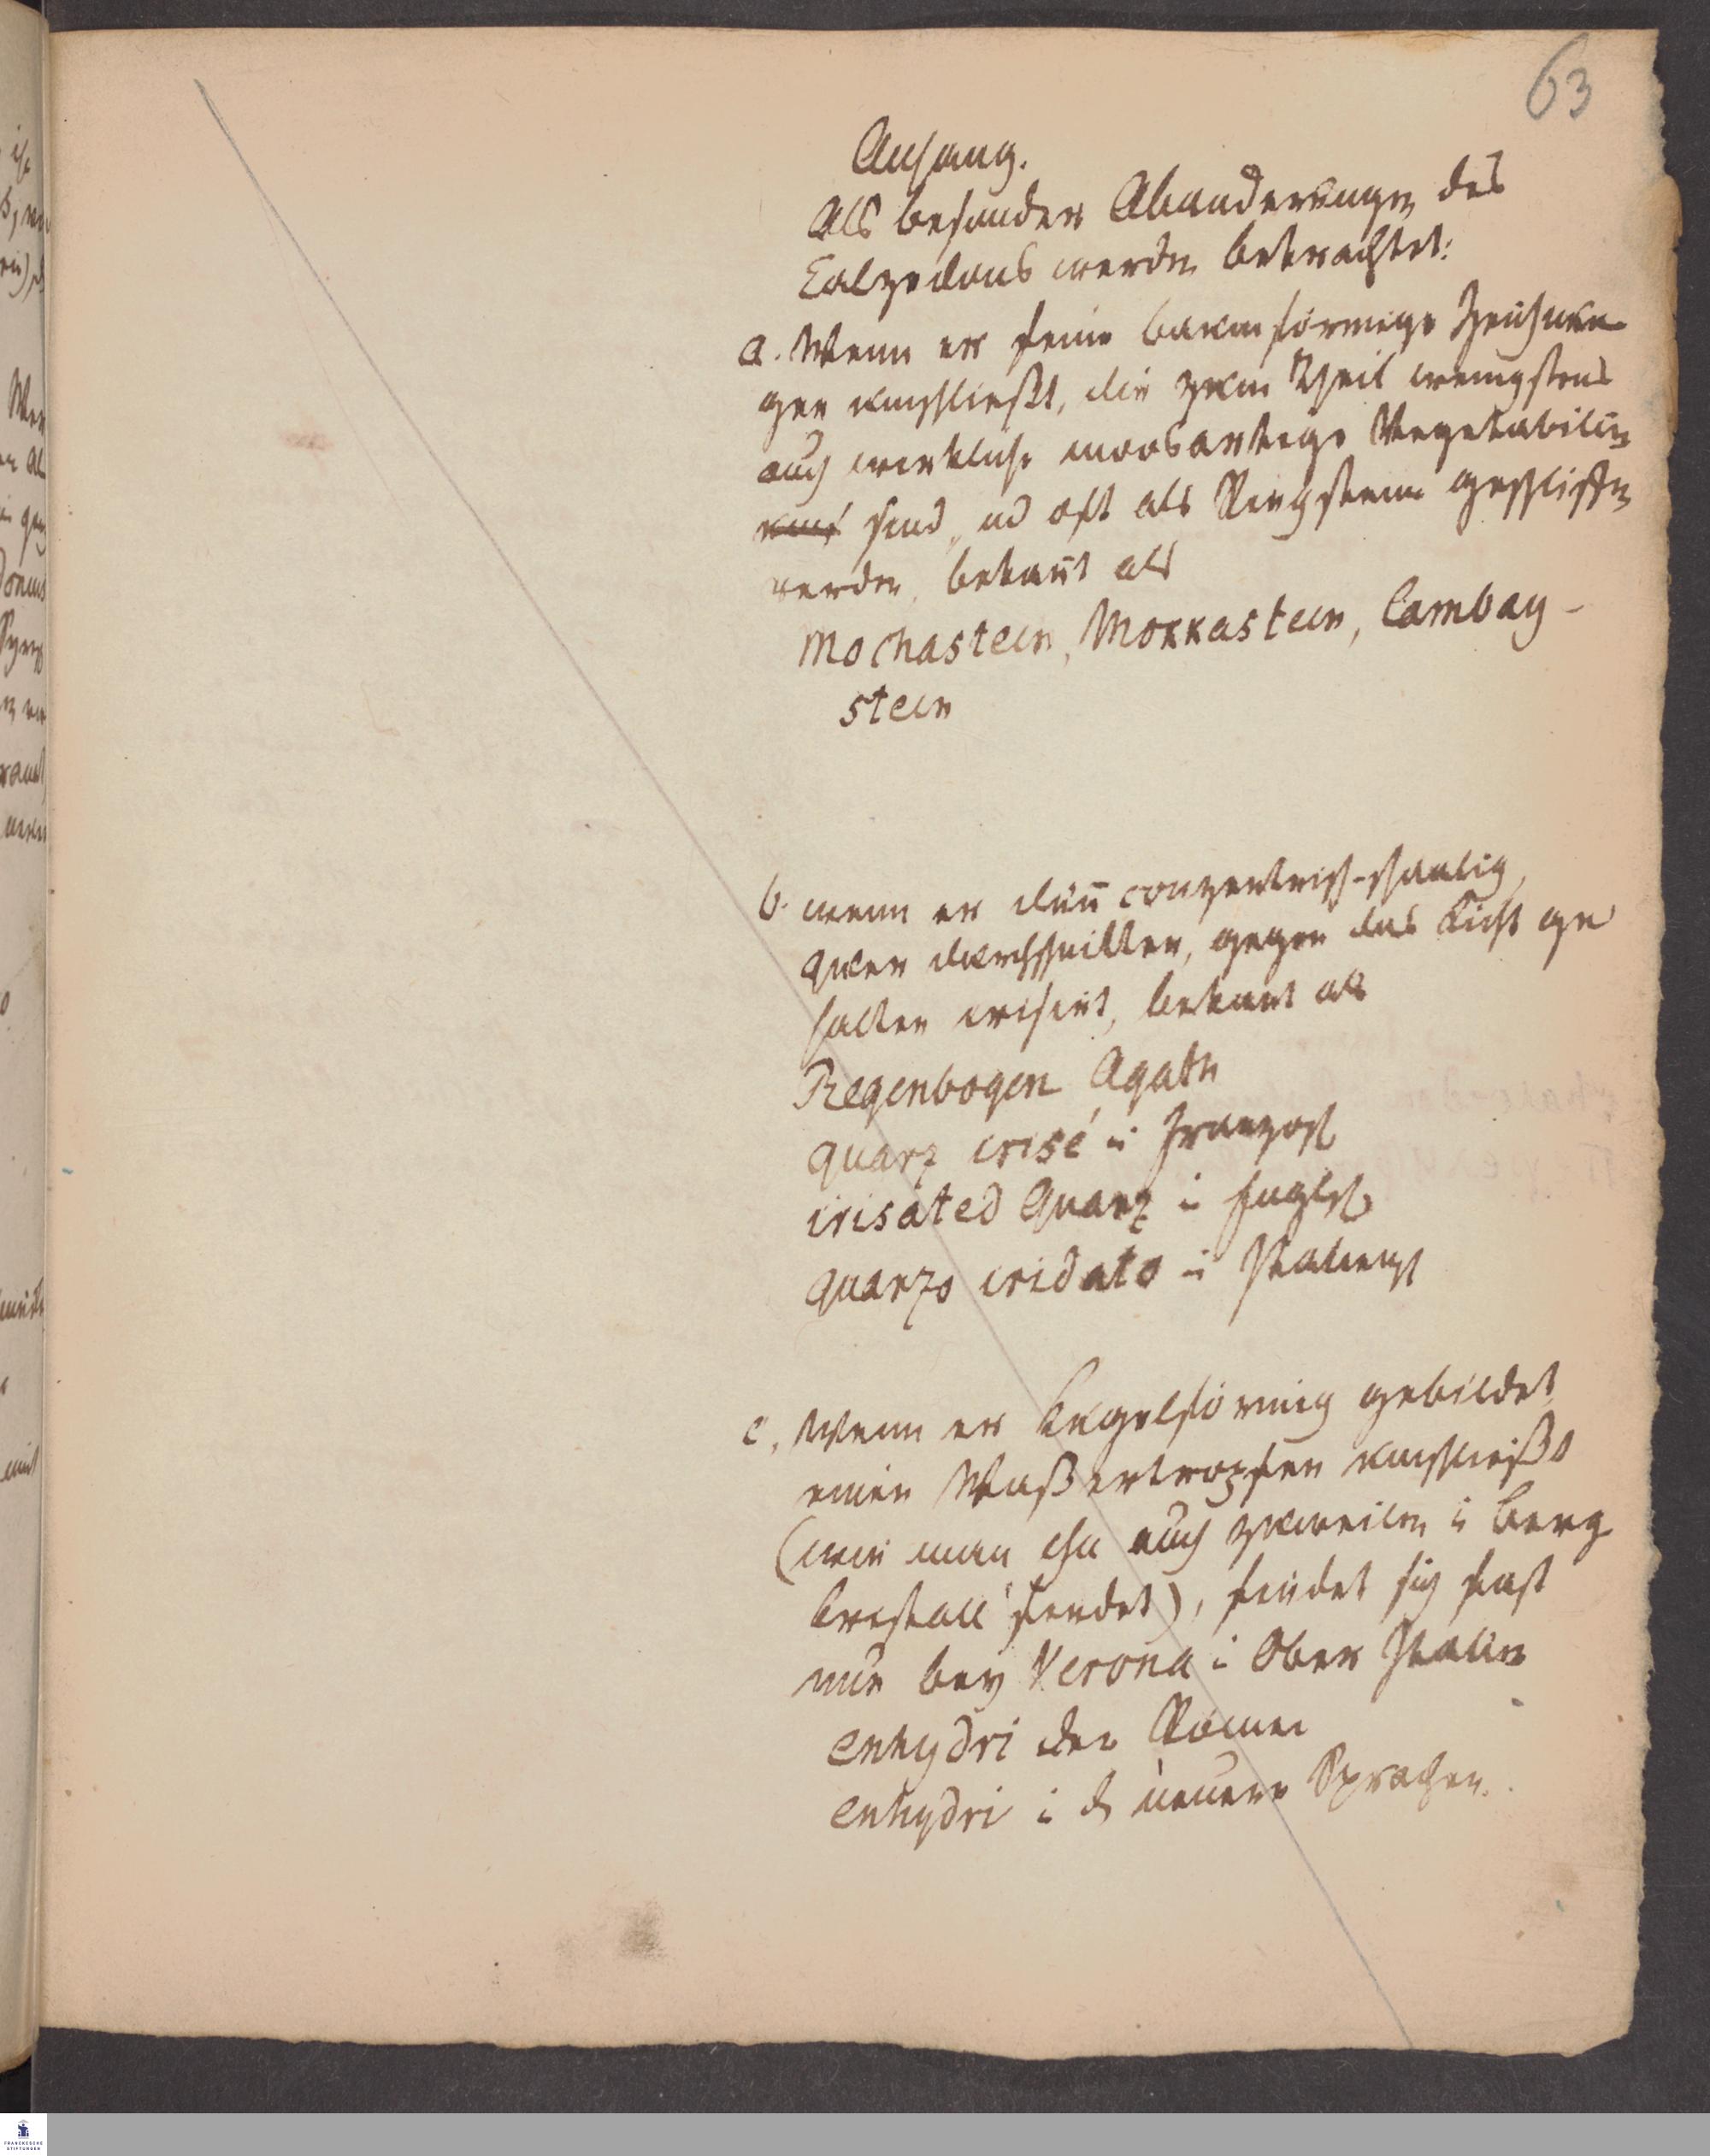 63
Anhang.
Als besondere Abanderungen des
Calzedons werden betrachtet:
a. Wenn er feine baumförmige Zeichnun
gen umschließt, die zum Theil wenigstens
auch wirkliche moosartige Vegetabilien
sind, und oft als Ringsteine geschliffen
werden, bekant als
Mochastein, Mokkastein, Cambay-
stein
b. wenn er dün conzentrisch-schaalig,
quer durchschnitten, gegen das Licht ge
halten irisirt, bekant als
Regenbogen Agath
quarz irisé i Französ
irisated Quarz i Englisch
quarzo iridato i Italienisch
c. Wenn er kugelförmig gebildet
einen Waßertropfen umschließt
(wie man ihn auch zuweilen i Berg
kristall findet), findet sich fast
nur bey Verona i Ober Italien
enhydri der Römer
enhydri i d neuern Sprachen.
FRANCKESCHE
STIFTUNGEN